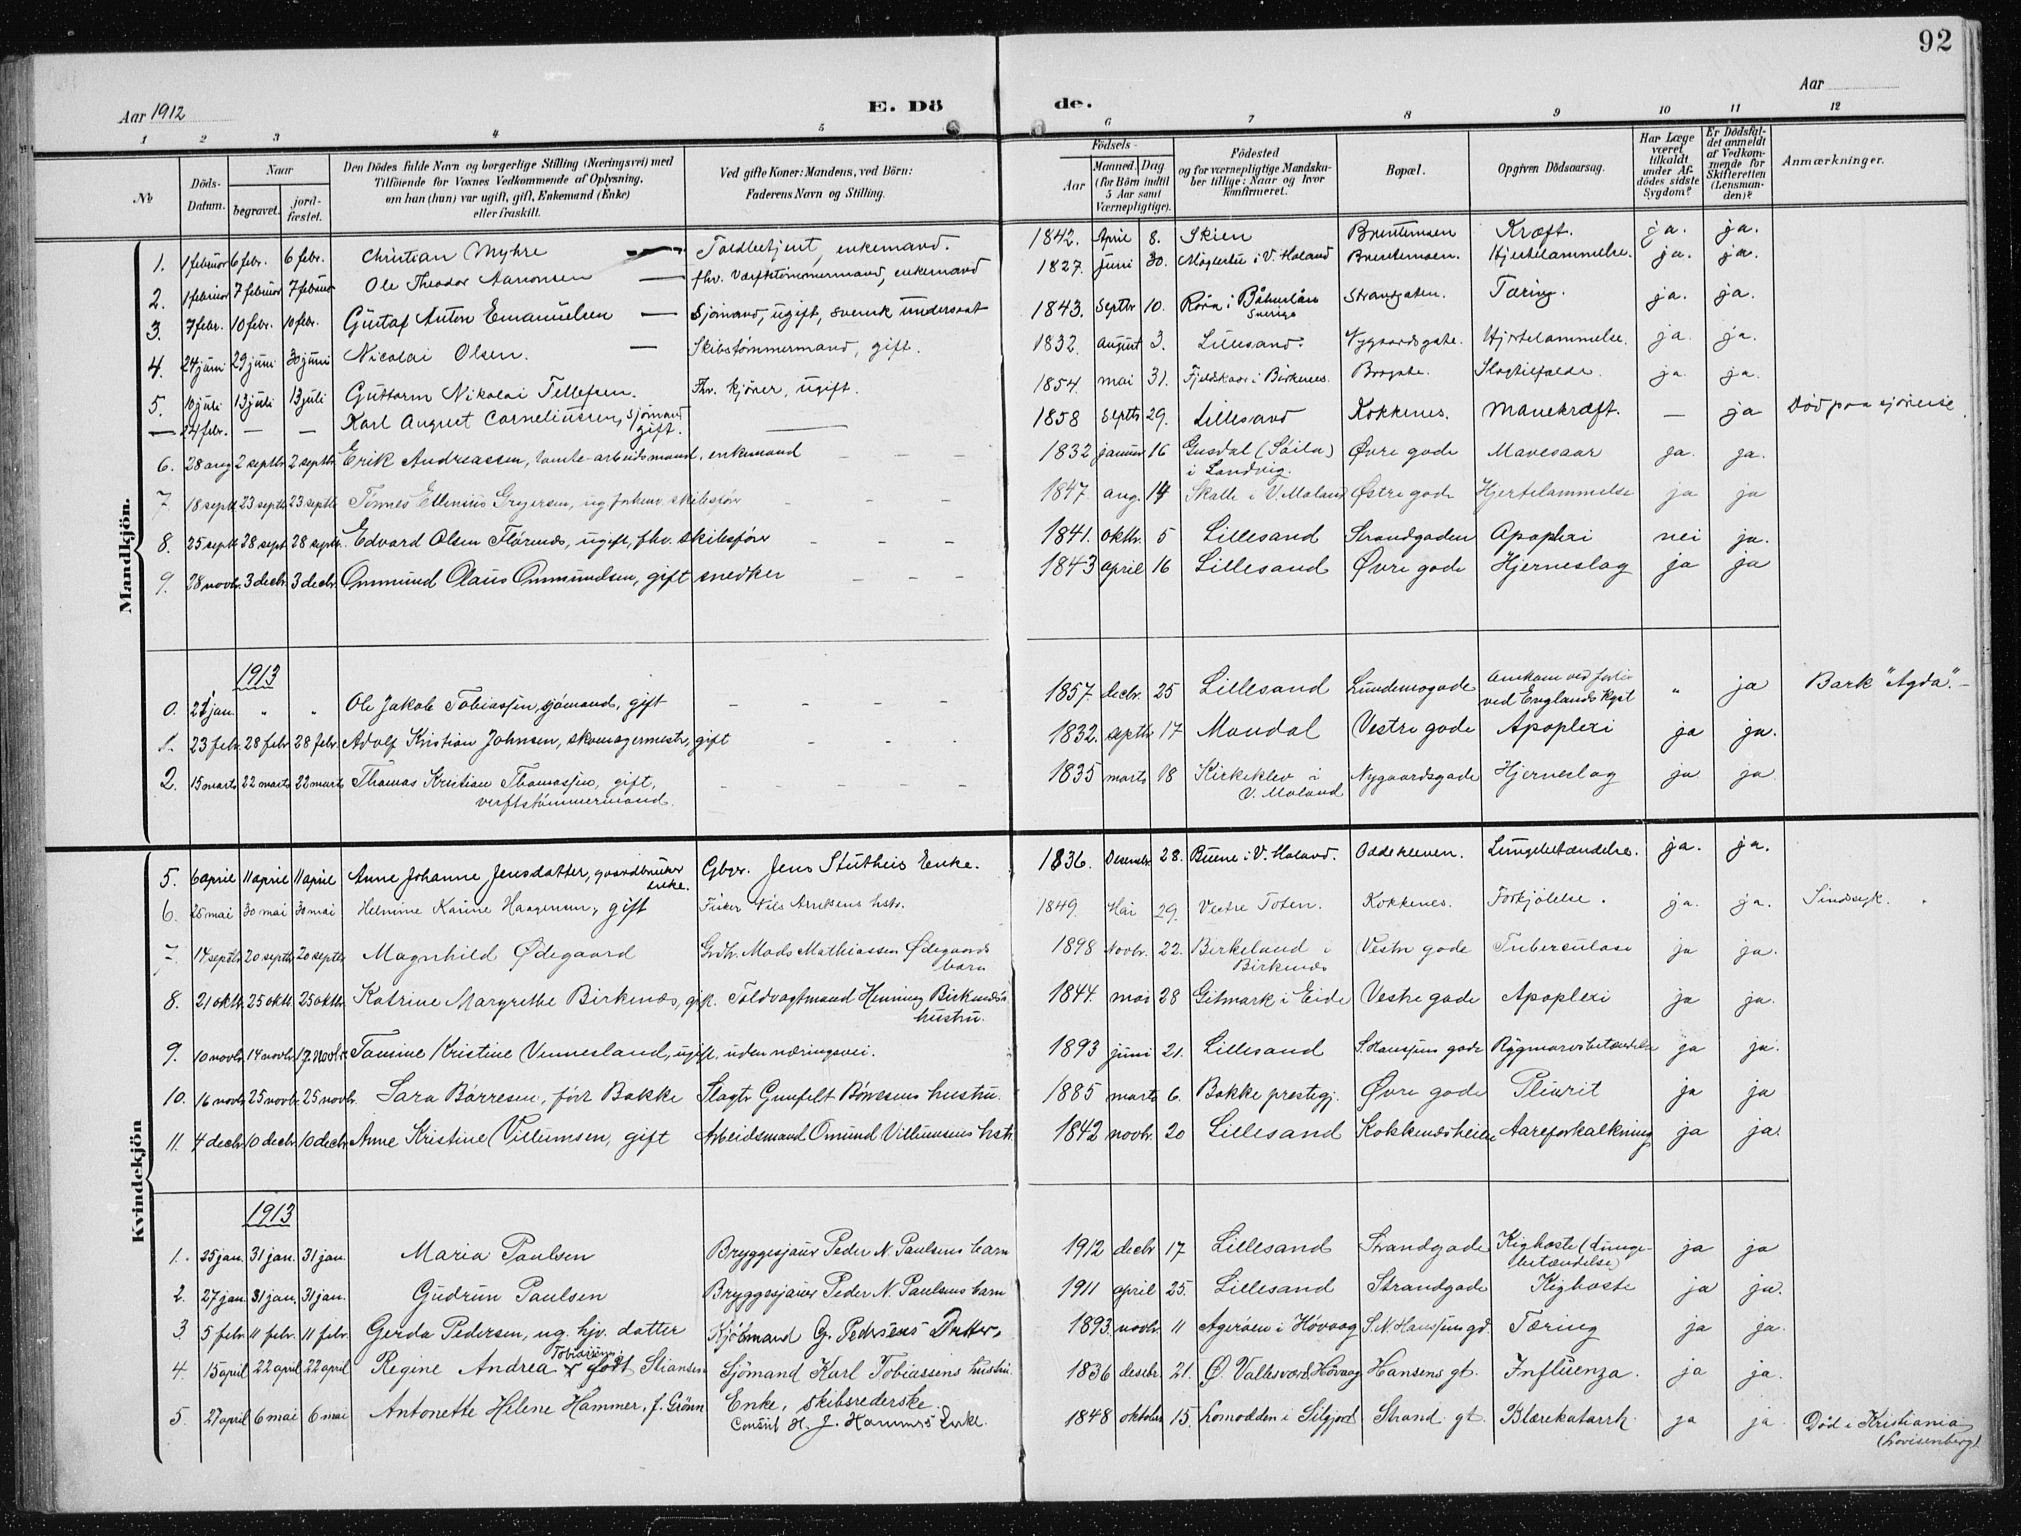 92
Aar 1912
E. Dö
de.
Aar
1 2 3 4 5 6 7 8 9 10 11 12
No
Döds-Datum.
Naar
begravet.
jord-fæstet.
Den Dödes fulde Navn og borgerlige Stilling (Næringsvei) med
Tilföiende for Voxnes Vedkommende af Oplysning,
om han (hun) var ugift, gift, Enkemand (Enke)
eller fraskilt.
Ved gifte Koner: Mandens, ved Börn:
Faderens Navn og Stilling.
Födsels-
Aar
Maaned. Dag
(for Börn indtil
5 Aar samt
Værnepligtige).
Födested
og for værnepligtige Mandska-
ber tillige: Naar og hvor
konfirmeret.
Bopæl.
Opgiven Dödsaarsag.
Har Læge
været
tilkaldt
under Af-
dödes sidste
Sygdom?
Er Dödsfal-
det anmeldt
af Vedkom-
mende for
Skifteretten
(Lensman-
den)?
Anmærkninger.
Mandkjön.
1. 1 februar 6 febr. 6 febr. Christian Myhre — Toldbetjent, enkemand. 1842. April 8. Skien Brentemoen Kræft. ja. ja.
2. 1 februar 7 februar 7 februar Ole Theodor Aanonsen — fhv. Værftstømmermand, enkemand 1827. juni 30. i V. Moland Brentemoen. Hjertelammelse. ja. ja.
3. 7 febr. 10 febr. 10 febr. Gustaf Anton Emanuelsen — Sjømand, ugift, svensk undersaat 1843. Septbr 10. Röra i Båhuslän Sverige Strandgaten. Tæring. ja. ja.
4. 24 juni 29 juni 30 juni Nicolai Olsen. — Skibstømmermand, gift. 1832. august 3. Lillesand. Nygaardsgate. Hjertelammelse. ja. ja.
5. 10 juli 13 juli 13 juli Guttorm Nikolai Tellefsen. Fhv. kjører, ugift. 1854. mai 31. i Birkenes. Slagtilfælde. ja. ja.
— 24 febr. — — Karl August Corneliussen, sjömand gift. — 1858 septbr 29. Lillesand Kokkenes. Mavekræft. — ja Död paa sjöreise.
6. 28 aug 2 septbr 2 septbr Erik Andreassen, tomte-arbeidsmand, enkemand — — — 1832 januar 16 i Landvig. Øvre gade Mavesaar ja. ja.
7. 18 septb 23 septb 23 septb Tönnes Ellenius Gregersen, ug forhenv. skibsfør — — — 1847. aug. 14 i V. Moland Østre gade Hjertelammelse ja ja
8. 25 septb 28 sept. 28 septb. Edvard Olsen Flörenæs, ugift, fhv. skibsförer — — — 1841. oktbr. 5 Lillesand Strandgaden Apoplexi nei ja.
9. 28 novbr. 3 decbr. 3 decbr. Ommund Olaus Ommundsen, gift snedker — — — 1843 april 16 Lillesand Øvre gade Hjerneslag ja ja
1913
0. 21 jan. " " Ole Jakob Tobiassen, sjømand, gift — — — — 1857. decbr. 25 Lillesand Lundemogade Omkom ved forlis ved Englands kyst " ja Bark "Agda".
1. 23 febr 28 febr 28 febr. Adolf Kristian Johnsen, skomagermestr, gift — — — 1832. septbr 17 Mandal Vestre gade Apoplexi ja ja.
2. 15 marts 22 marts 22 marts Thomas Kristian Thomassen, gift, verftstømmermand. — — — — — 1835 marts 18 Kirkeklev i V. Moland Nygaardsgade Hjerneslag ja ja.
Kvindekjön
5. 6 april 11 april 11 april Anne Johanne Jensdatter, gaardbruker enke. Gbgr. Jens Stutheis Enke. 1836. Desember 28. i V. Moland. Oddekleven. Lungebetændelse. ja. ja.
6. 25 mai 30 mai 30 mai Helmine Karine Haagensen, gift Fisker Nils hstr. 1849. Mai 29. Vestre Toten. Kokkenes. Forkjølelse. ja. ja. Sindssyk.
7. 14 septbr 20 septbr 20 septbr Magnhild Ødegaard Mads Mathiassen Ødegaards barn 1898 Novbr. 22. Birkeland i Birkenæs Vestre gade Tuberculose ja ja.
8. 21 oktb. 25 oktb. 25 oktb. Katrine Margrethe Birkenæs, gift. Toldvagtmand Henning Birkenæs's hustru. 1844. mai 28 Gitmark i Eide Vestre gade Apoplexi ja ja.
9. 10 novbr. 14 novbr. 17. novbr. Tomine Kristine Vennesland, ugift, uden næringsvei. 1893 juni 21. Lillesand S. Hanssens gade Rygmarvsbetændelse ja ja.
10. 16 novbr. 25 novbr. 25 novbr. Sara Børresen, født Bakke Slagtr. Gunfelt Børresens hustru. 1885 marts 6. Bakke prestegj. Øvre gade Pleurit ja ja
11. 4 decbr. 10 decbr. 10 decbr. Anne Kristine Villumsen, gift Arbeidsmand Omund Villumsens hstr. 1842 novbr. 20 Lillesand Kokkenæsheien Aareforkalkning ja ja.
1913
1. 25 jan. 31 jan. 31 jan. Maria Paulsen Bryggesjauer Peder N. Paulsens barn 1912 decbr 17 Lillesand Strandgade Kighoste (Lunge-betændelse) ja ja
2. 27 jan. 31 jan. 31 jan. Gudrun Paulsen Bryggesjauer Peder N. Paulsens barn 1911 april 25. Lillesand Strandgade Kighoste ja ja.
3. 5 febr. 11 febr. 11 febr. Gerda Pedersen, ug. hjv. datter Kjöbmand G. Pedersens Datter. 1893. novbr. 11 Agerøen i Høvaag S. N. Hanssens gd. Tæring ja ja.
4. 15 april 22 april 22 april Regine Andrea Tobiassen født Stiansen Sjömand Karl Tobiassens hustru. 1836 desebr. 21. Ø. Vallesværd, Høvaag Hansens gt. Influenza. ja ja.
5. 27 april 6 mai 6 mai Antonette Helene Hammer, f. Grönn Enke, skibsrederske. Consul H. J. Hammers Enke. 1848 oktober 15. i Siljord Strand. gt. Blærekatarrh. ja ja. Död i Kristiania (Lovisenberg)